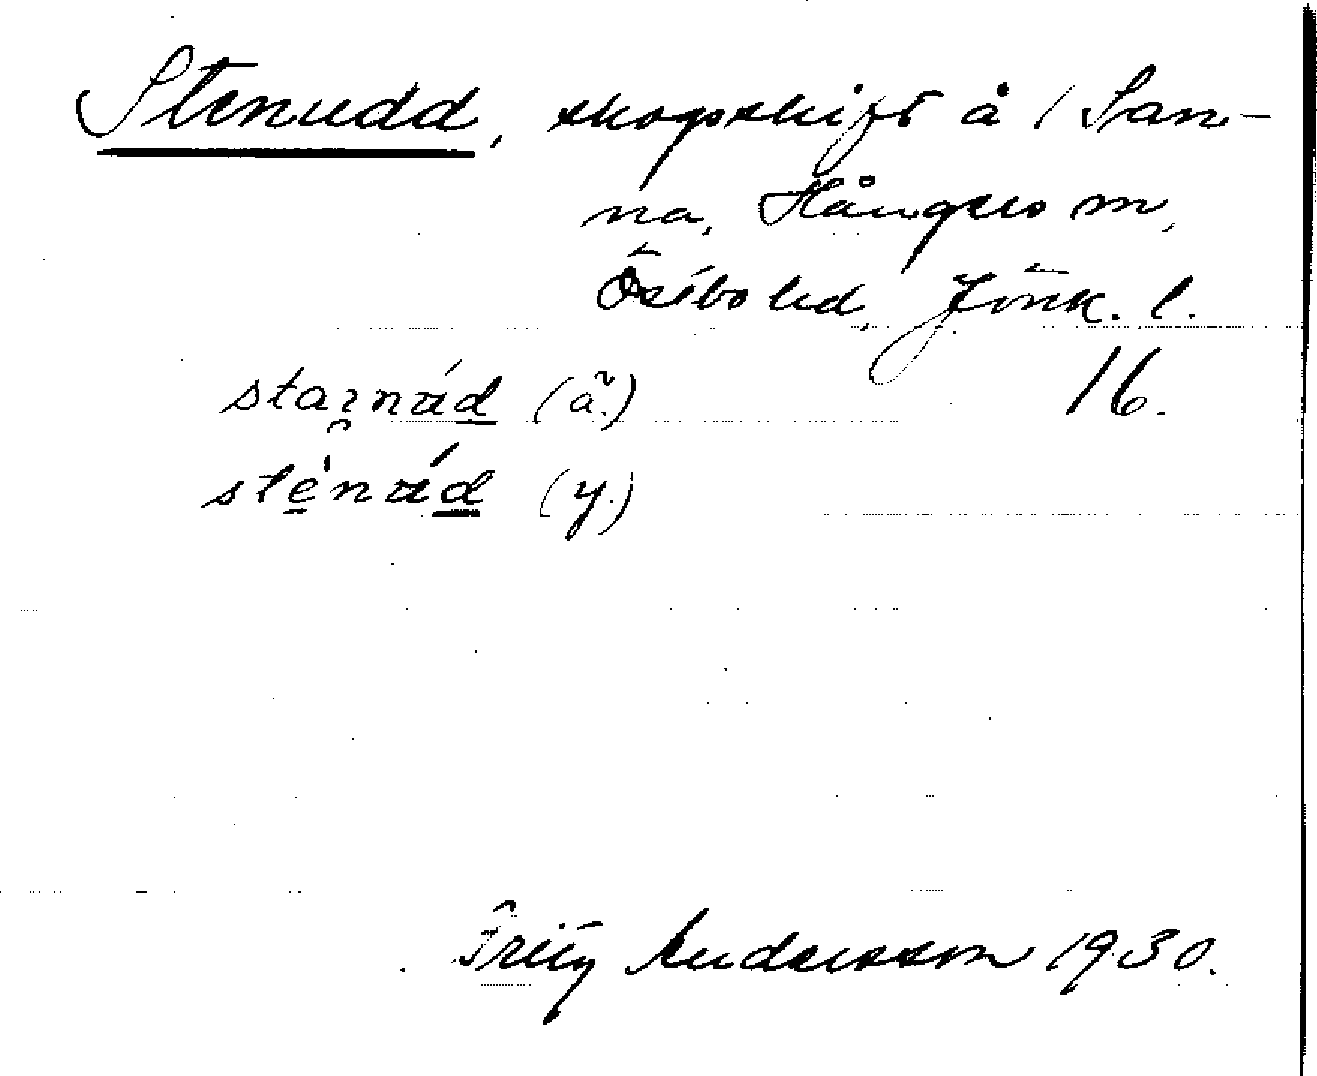 Stenudd, skogsskift å 1 San-
na, Hångers sn,
Östbo hd, Jönk. l.
16.
staınád (ã.)
stènád (y.)
Fritz Andersson 1930.